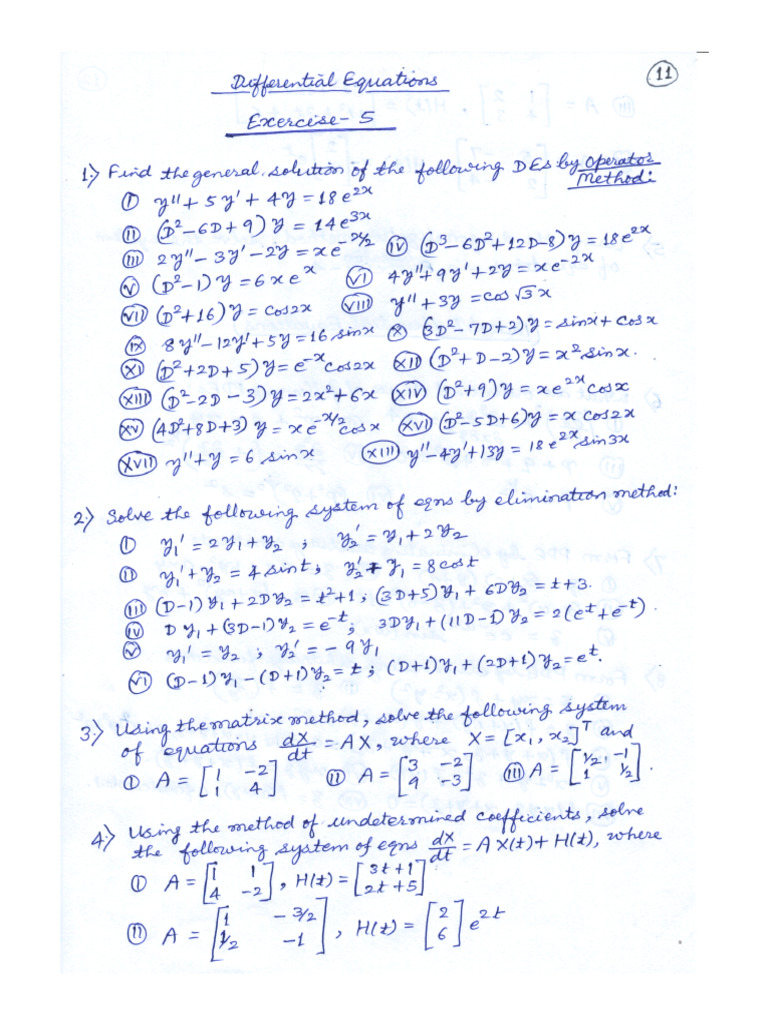 11
Differential Equations
Exercise-5
1:) Find the general solution of the following DEs by Operator
Method:
(i) y'' + 5y' + 4y = 18e^{2x}
(ii) (D²-6D+9)y = 14e^{3x}
(iii) 2y'' - 3y' - 2y = xe^{-x/2} (iv) (D³-6D²+12D-8)y = 18e^{2x}
(v) (D²-1)y = 6xe^x (vi) 4y''+9y'+2y = xe^{-2x}
(vii) (D²+16)y = cos2x (viii) y''+3y = cos √3x
(ix) 8y''-12y'+5y = 16 sinx (x) (3D²-7D+2)y = sinx + cosx
(xi) (D²+2D+5)y = e^{-x}cos2x (xii) (D²+D-2)y = x² sinx.
(xiii) (D²-2D-3)y = 2x²+6x (xiv) (D²+9)y = xe^{2x}cosx
(xv) (4D²+8D+3)y = xe^{-x/2}cosx (xvi) (D²-5D+6)y = x cos2x
(xvii) y''+y = 6 sinx (xiii) y''-4y'+13y = 18e^{2x}sin3x
2:) Solve the following system of eqns by elimination method:
(i) y₁' = 2y₁+y₂ ; y₂' = y₁+2y₂
(ii) y₁'+y₂ = 4 sint; y₂'+y₁ = 8cost
(iii) (D-1)y₁+2Dy₂ = t²+1; (3D+5)y₁+6Dy₂ = t+3.
(iv) Dy₁+(3D-1)y₂ = e^{-t}; 3Dy₁+(11D-1)y₂ = 2(e^t+e^{-t})
(v) y₁' = y₂ ; y₂' = -9y₁
(vi) (D-1)y₁-(D+1)y₂ = t; (D+1)y₁+(2D+1)y₂ = e^t.
3:) Using the matrix method, solve the following system
of equations dX/dt = AX, where X = [x₁, x₂]^T and
(i) A = [1 -2; 1 4] (ii) A = [3 -2; 9 -3] (iii) A = [1/2, -1; 1 1/2].
4:) Using the method of undetermined coefficients, solve
the following system of eqns dX/dt = A X(t) + H(t), where
(i) A = [1 1; 4 -2], H(t) = [3t+1; 2t+5]
(ii) A = [1 -3/2; 1/2 -1], H(t) = [2; 6] e^{2t}